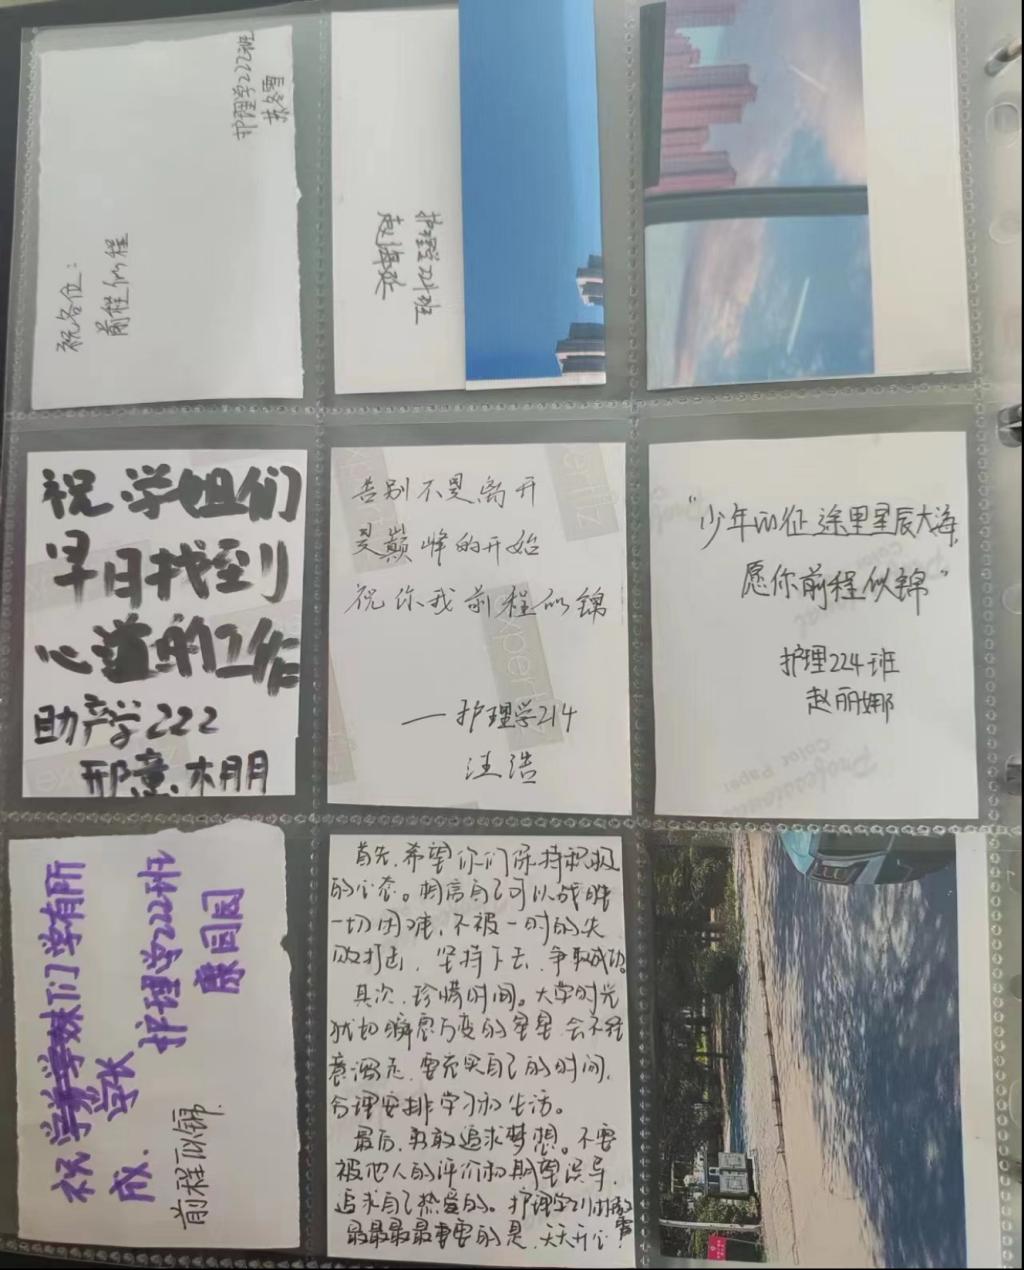 护理学222班
祝各位：
前程似锦
护理学224班
祝学姐们
早日找到
心道的工作
助产学222
邢童、木朋
告别不是离开
是巅峰的开始
祝你我前程似锦
——护理学214
汪浩
“少年的征途里星辰大海，
愿你前程似锦”
护理224班
赵丽娜
祝学妹们学有所
学长
成.
护理学222班
康园园
前程似锦.
首先,希望你们保持积极
的心态。相信自己可以战胜
一切困难,不被一时的失
败打击,坚持下去,争取成功。
其次,珍惜时间。大学时光
犹如瞬息万变的星星,会不经
意溜走,要充实自己的时间,
合理安排学习和生活。
最后,勇敢追求梦想。不要
被他人的评价和期望误导,
追求自己热爱的。护理学211
最最最最重要的是,天天开心!
Professional
Color Paper